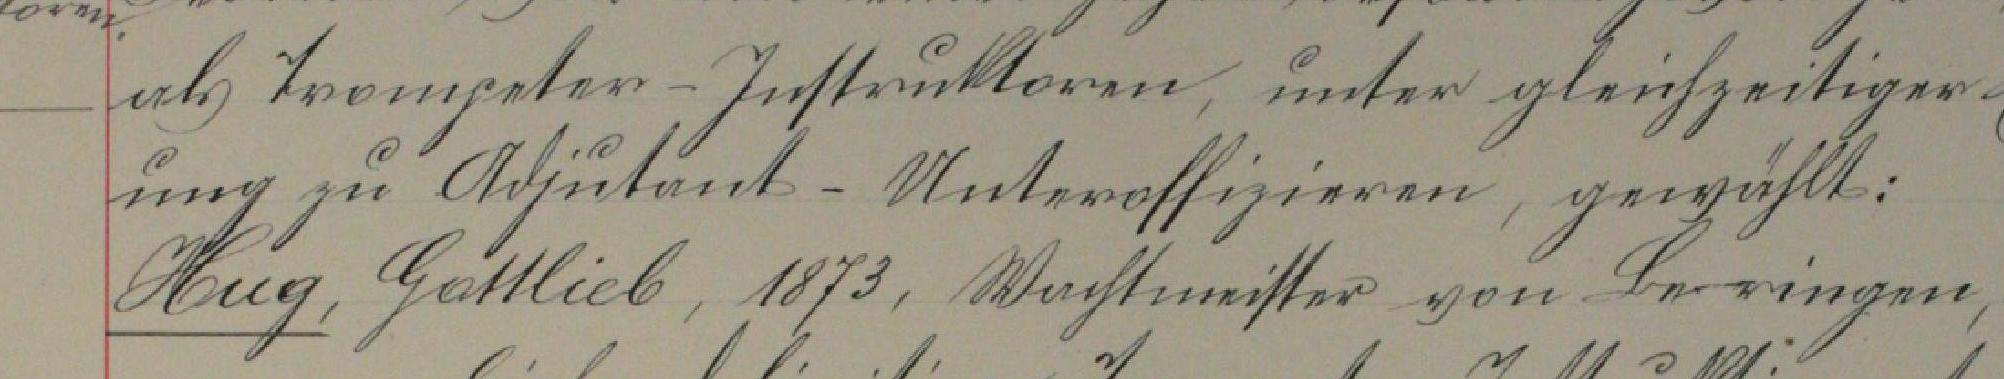 als Trompeter-Instruktoren, unter gleichzeitiger
ung zu Adjutant-Unteroffizieren, gewählt:
Hug, Gottlieb, 1873, Wachtmeister von Beringen,